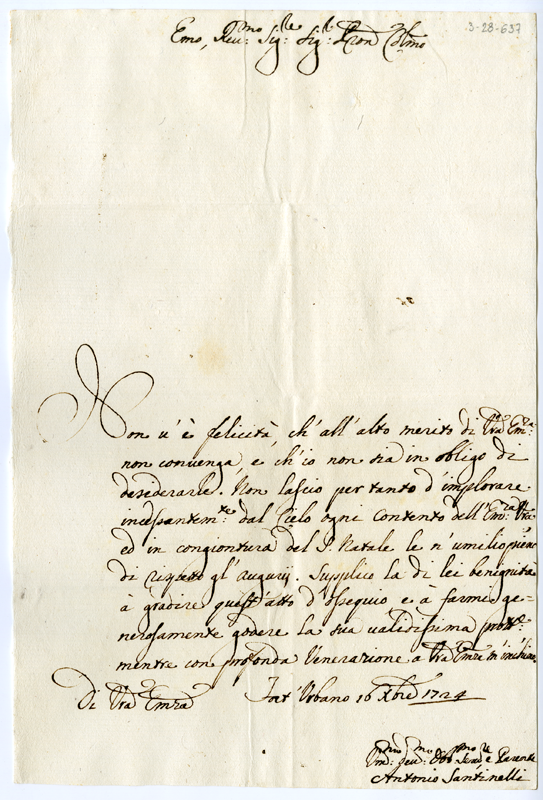 3-28-637
Emo, Reu:mo Sig:re Sig:r Pron Colmo
Non u'è felicità, ch'all'alto merito di Vra Em:za
non conuenga, e ch'io non sia in obligo di
desiderarle. Non lascio per tanto d'implorare
incessantem:te dal Cielo ogni contento dell'Em:za Vra
ed in congiontura del S. Natale le n'umilio pieni
di rispetto gl'Augurij. Supplico la di lei benignità
à gradire quest'atto d'ossequio e a farmi ge=
nerosamente godere la sua ualidissima prott:ne
mentre con profonda Venerazione a Vra Emza m'inchino
Di Vra Emza Fort'Urbano 16 Xbre 1724
Um:mo Deu:mo Obb:mo Seru:re e Parente
Antonio Santinelli